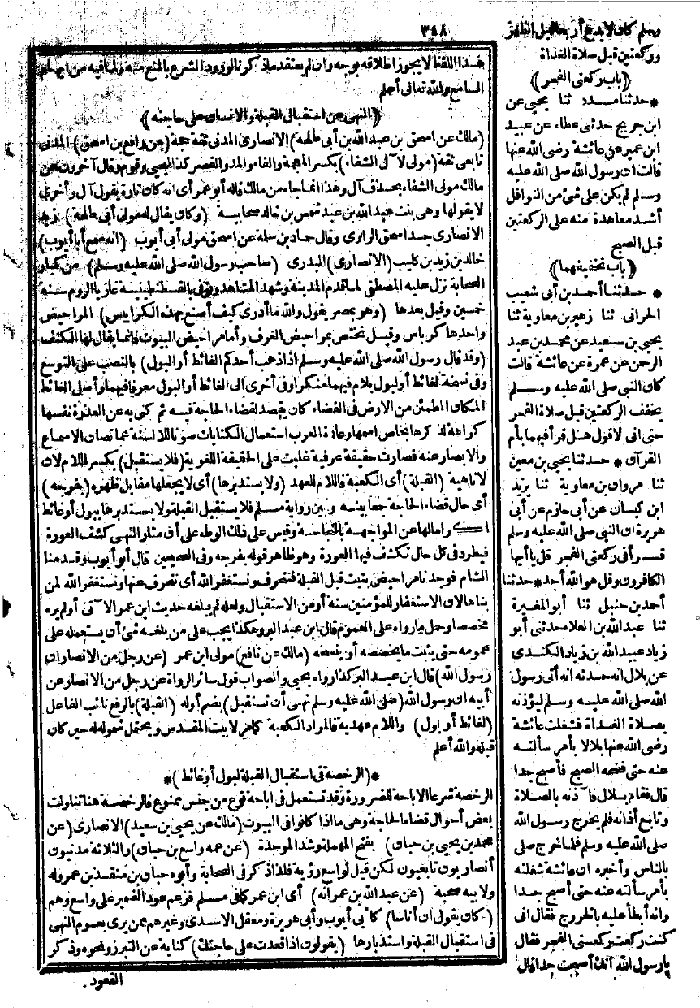 ٣٤٨
هذا اللفظ لا يجوز اطلاقه بوجه وان لم يعتقد ماذكر لورود الشرع بالمنع منه
السامع والله تعالى أعلم
﴿النهى عن استقبال القبلة والانسان على حاجته﴾
(مالك عن اسحق بن عبد الله بن أبى طلحة) الانصارى المدنى ثقة حجة (عن رافع بن اسحق) المدنى
تابعى ثقة (مولى لآل الشفاء) بكسر المعجمة والفاء والمد
مالك مولى الشفاء بحذف آل وهذا انما جاء من مالك قاله أبو عمر أى انه كان تارة يقول آل وأخرى
لا يقولها وهى بنت عبد الله بن عبد شمس بن خالد صحابية (وكان يقال له مولى أبى طلحة) زيد
الانصارى جد اسحق الراوى وقال حماد بن سلمة عن اسحق مولى أبى أيوب (انه سمع أبا أيوب)
خالد بن زيد بن كليب (الانصارى) البدرى (صاحب رسول الله صلى الله عليه وسلم) من كبار
الصحابة نزل عليه المصطفى لما قدم المدينة وشهد المشاهد وتوفى بالقسطنطينية غازيا الروم سنة
خمسين وقيل بعدها (وهو بمصر يقول والله ما أدرى كيف أصنع بهذه الكرابيس) المراحيض
واحدها كرباس وقيل يختص بمراحيض الغرف وأما مراحيض البيوت فانما يقال لها الكنف
(وقد قال رسول الله صلى الله عليه وسلم اذا ذهب أحدكم الغائط أو البول) بالنصب على التوسع
وفى نسخة لغائط أو لبول بلام فيهما منكرا وفى أخرى الى الغائط أو البول معرفا فيهما وأصل الغائط
المكان المطمئن من الارض فى الفضاء كان يقصد لقضاء الحاجة فيه ثم كنى به عن العذرة نفسها
كراهة لذكرها بخاص اسمها وعادة العرب استعمال الكنايات صونا للالسنة عما تصان الاسماع
والابصار عنه فصارت حقيقة عرفية غلبت على الحقيقة اللغوية (فلا يستقبل) بكسر اللام لان
لا ناهية (القبلة) أى الكعبة فاللام للعهد (ولا يستدبرها) أى لا يجعلها مقابل ظهره (بفرجه)
أى حال قضاء الحاجة جمعا بينه وبين رواية مسلم فلا يستقبل القبلة ولا يستدبرها ببول أو غائط
اكراما لها عن المواجهة بالنجاسة وقيس على ذلك الوطء على أن مثار النهى كشف العورة
فيطرد فى كل حال تكشف فيها العورة وهو ظاهر قوله بفرجه وفى الصحيحين قال أبو أيوب وقدمنا
الشام فوجدنا مراحيض بنيت قبل القبلة فننحرف ونستغفر الله أى ننحرف عنها ونستغفر الله لمن
بناها لان الاستغفار للمؤمنين سنة أو من الاستقبال ولعله لم يبلغه حديث ابن عمر الآتى أو لم يره
مخصصا وحمل ما رواه على العموم قال ابن عبد البر وهكذا يجب على من بلغه شئ أن يستعمله على
عمومه حتى يثبت ما يخصصه أو ينسخه (مالك عن نافع) مولى ابن عمر (عن رجل من الانصار ان
رسول الله) قال ابن عبد البر كذا رواه يحيى والصواب قول سائر الرواة عن رجل من الانصار عن
أبيه ان رسول الله (صلى الله عليه وسلم نهى أن تستقبل) بضم أوله (القبلة) بالرفع نائب الفاعل
(لغائط أو بول) واللام عهدية فالمراد الكعبة كما مر لا بيت المقدس ويحتمل شموله له حين كان
قبلة والله أعلم
*(الرخصة فى استقبال القبلة لبول أو غائط)*
الرخصة شرعا الاباحة للضرورة وقد تستعمل فى اباحة نوع من جنس ممنوع فالرخصة هنا تناولت
بعض أحوال قضاء الحاجة وهى ما اذا كانوا فى البيوت (مالك عن يحيى بن سعيد) الانصارى (عن
محمد بن يحيى بن حبان) بفتح المهملة وشد الموحدة (عن عمه واسع بن حبان) والثلاثة مدنيون
أنصاريون تابعيون لكن قيل لواسع رؤية فلذا ذكر فى الصحابة وأبوه حبان بن منقذ بن عمرو له
ولأبيه صحبة (عن عبد الله بن عمر انه) أى ابن عمر كما فى مسلم فزعم عود الضمير على واسع وهم
(كان يقول ان أناسا) كأبى أيوب وأبى هريرة ومعقل الاسدى وغيرهم ممن يرى بعموم النهى
فى استقبال القبلة واستدبارها (يقولون اذا قعدت على حاجتك) كناية عن التبرز ونحوه وذكر
القعود
وسلم كان لا يدع أربعا قبل الظهر
وركعتين قبل صلاة الغداة
﴿باب ركعتى الفجر﴾
* حدثنا مسدد ثنا يحيى عن
ابن جريج حدثنى عطاء عن عبيد
ابن عمير عن عائشة رضى الله عنها
قالت ان رسول الله صلى الله عليه
وسلم لم يكن على شئ من النوافل
أشد معاهدة منه على الركعتين
قبل الصبح
﴿باب تخفيفهما﴾
* حدثنا أحمد بن أبى شعيب
الحرانى ثنا زهير بن معاوية ثنا
يحيى بن سعيد عن محمد بن عبد
الرحمن عن عمرة عن عائشة قالت
كان النبى صلى الله عليه وسلم
يخفف الركعتين قبل صلاة الفجر
حتى انى لاقول هل قرأ فيهما بأم
القرآن * حدثنا يحيى بن معين
ثنا مروان بن معاوية ثنا يزيد
ابن كيسان عن أبى حازم عن أبى
هريرة ان النبى صلى الله عليه وسلم
قرأ فى ركعتى الفجر قل يا أيها
الكافرون وقل هو الله أحد * حدثنا
أحمد بن حنبل ثنا أبو المغيرة
ثنا عبد الله بن العلاء حدثنى أبو
زيادة عبيد الله بن زياد الكندى
عن بلال انه حدثه انه أتى رسول
الله صلى الله عليه وسلم ليؤذنه
بصلاة الغداة فشغلت عائشة
رضى الله عنها بلالا بأمر سألته
عنه حتى فضحه الصبح فأصبح جدا
قال فقام بلال فآذنه بالصلاة
وتابع أذانه فلم يخرج رسول الله
صلى الله عليه وسلم فلما خرج صلى
بالناس وأخبره ان عائشة شغلته
بأمر سألته عنه حتى أصبح جدا
وانه أبطأ عليه بالخروج فقال انى
كنت ركعت ركعتى الفجر فقال
يا رسول الله انك أصبحت جدا قال